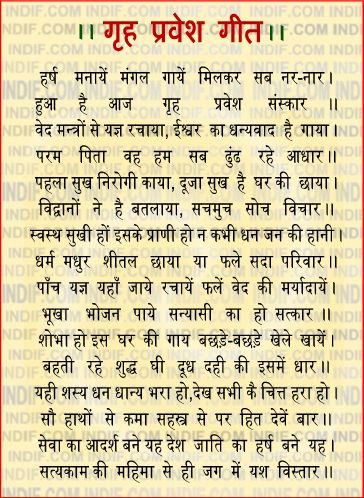 ।। गृह प्रवेश गीत ।।
हर्ष मनायें मंगल गायें मिलकर सब नर-नार ।
हुआ है आज गृह प्रवेश संस्कार ।।
वेद मन्त्रों से यज्ञ रचाया, ईश्वर का धन्यवाद है गाया ।
परम पिता वह हम सब ढुंढ रहे आधार ।।
पहला सुख निरोगी काया, दूजा सुख है घर की छाया ।
विद्वानों ने है बतलाया, सचमुच सोच विचार ।।
स्वस्थ सुखी हों इसके प्राणी हो न कभी धन जन की हानी ।
धर्म मधुर शीतल छाया या फले सदा परिवार ।।
पाँच यज्ञ यहाँ जाये रचायें फलें वेद की मर्यादायें ।
भूखा भोजन पाये सन्यासी का हो सत्कार ।।
शोभा हो इस घर की गाय बछड़े-बछड़े खेले खायें ।
बहती रहे शुद्ध घी दूध दही की इसमें धार ।।
यही शस्य धन धान्य भरा हो,देख सभी कै चित्त हरा हो ।
सौ हाथों से कमा सहस्त्र से पर हित देवें बार ।।
सेवा का आदर्श बने यह देश जाति का हर्ष बने यह ।
सत्यकाम की महिमा से ही जग में यश विस्तार ।।
INDIF.COM